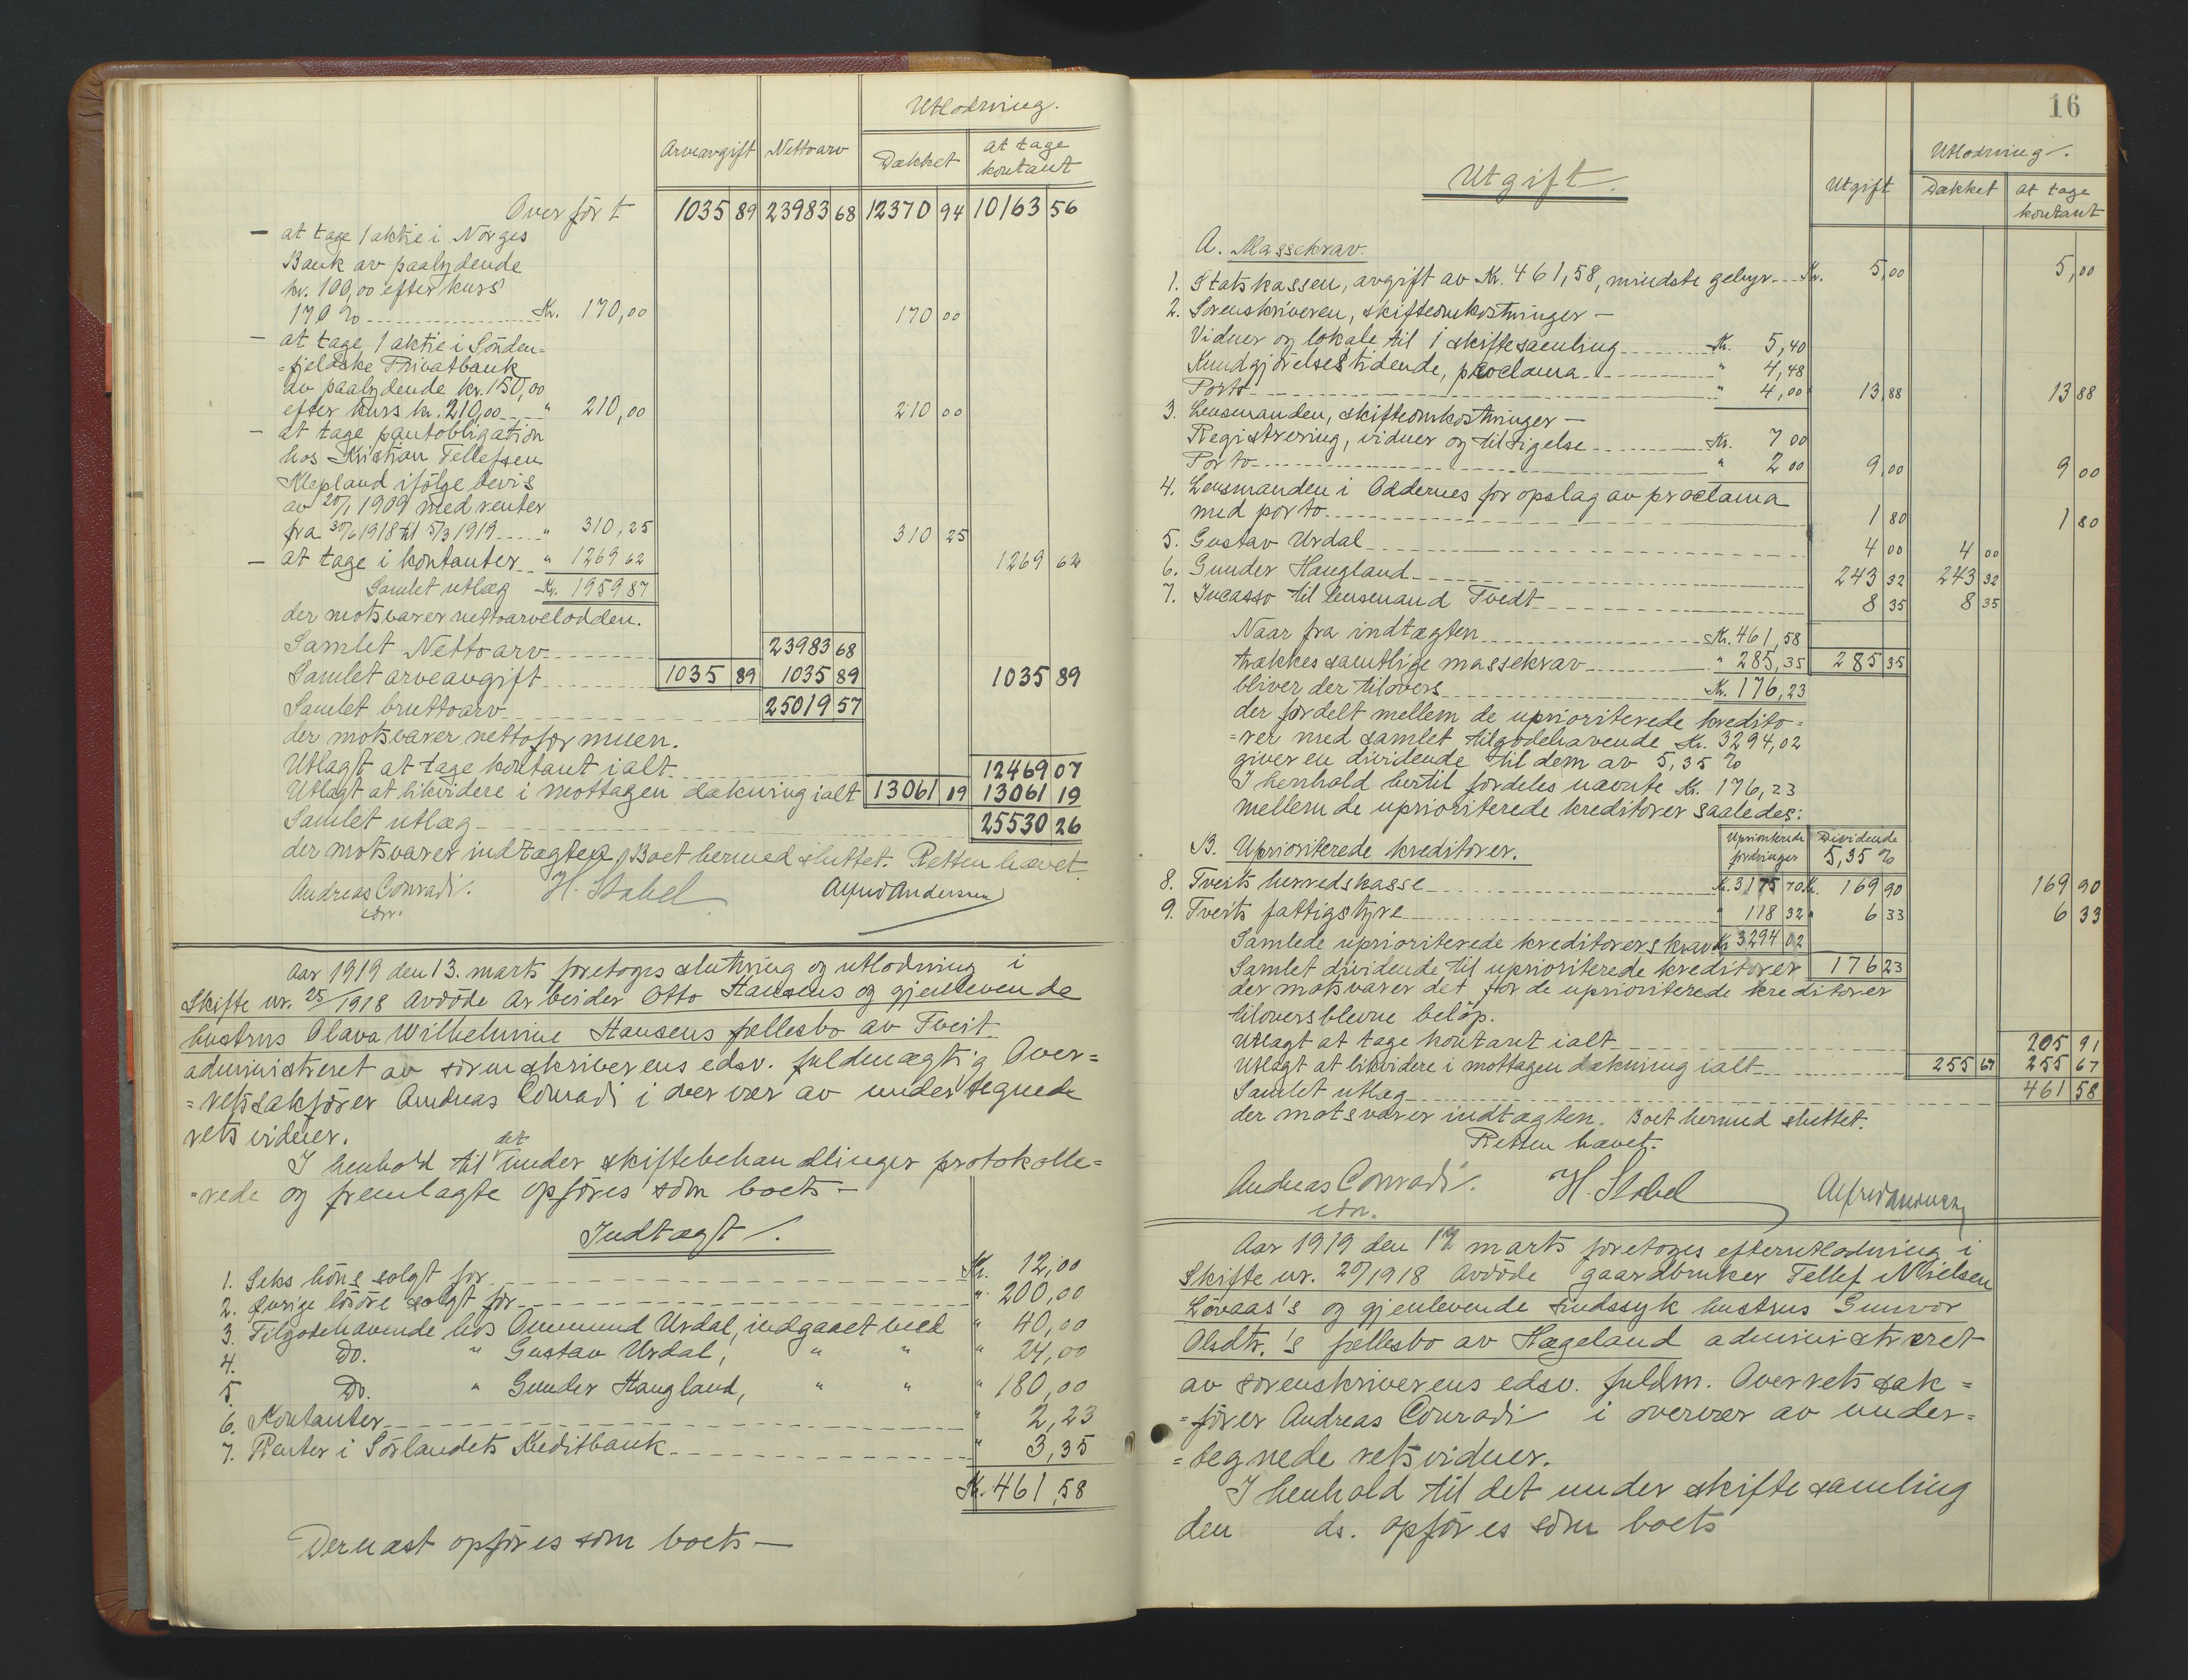 Utlodning.
Arveavgift Nettoarv Dækket at tage kontant
Overført 1035 89 23983 68 12370 94 10163 56
— at tage 1 aktie i Norges
Bank av paalydende
kr. 100,00 efter kurs
170 % Kr. 170,00 170 00
— at tage 1 aktie i Sönden=
=fjeldske Privatbank
av paalydende kr. 150,00
efter kurs kr. 210,00 " 210,00 210 00
— at tage pantobligation
hos Kristian Tellefsen
Klepland ifölge bevis
av 20/1 1909 med renter
fra 30/6 1918 til 5/3 1919 " 310,25 310 25
— at tage i kontanter " 1269 62 1269 62
Samlet utlæg Kr. 1959 87
der motsvarer nettoarvelodden.
Samlet Nettoarv 23983 68
Samlet arveavgift 1035 89 1035 89 1035 89
Samlet bruttoarv 25019 57
der motsvarer nettoformuen.
Utlagt at tage kontant ialt 12469 07
Utlagt at likvidere i mottagen dækning ialt 13061 19 13061 19
Samlet utlæg 25530 26
der motsvarer indtægten. Boet hermed sluttet. Retten hævet.
Andreas Conradi. H. Stabel Alfred Andersen
edsv.
Aar 1919 den 13. marts foretoges slutning og utlodning i
Skifte nr. 25/1918 Avdöde Arbeider Otto Hansens og gjenlevende
hustrus Olava Wilhelmine Hansens fællesbo av Tveit
administreret av sorenskriverens edsv. fuldmægtig Over=
=retssakfører Andreas Conradi i overvær av undertegnede
retsvidner.
I henhold til det under skiftebehandlingen protokolle=
=rede og fremlagte opføres som boets —
Indtægt.
1. Seks höns solgt for Kr. 12,00
2. Øvrige løsöre solgt for " 200,00
3. Tilgodehavende hos Ommund Urdal, indgaaet med " 40,00
4. Do. " Gustav Urdal, " " " 24,00
5. Do. " Gunder Haugland, " " " 180,00
6. Kontanter " 2,23
7. Renter i Sörlandets Kreditbank " 3,35
Kr. 461,58
Dernæst opføres som boets —
16
Utgift.
Utgift Utlodning. Dækket at tage kontant
A. Massekrav.
1. Statskassen, avgift av Kr. 461,58, mindste gebyr Kr. 5,00 5,00
2. Sorenskriveren, skifteomkostninger —
Vidner og lokale til 1 skiftesamling Kr. 5,40
Kundgjörelsestidende, proclama " 4,48
Porto " 4,00 13,88 13 88
3. Lensmanden, skifteomkostninger —
Registrering, vidner og tilsigelse Kr. 7 00
Porto " 2 00 9,00 9 00
4. Lensmanden i Oddernes for opslag av proclama
med porto 1 80 1 80
5. Gustav Urdal 4 00 4 00
6. Gunder Haugland 243 32 243 32
7. Incasso til lensmand Tvedt 8 35 8 35
Naar fra indtægten Kr. 461,58
trækkes samtlige massekrav " 285,35 285 35
bliver der tilovers Kr. 176,23
der fordelt mellem de uprioriterede kredito=
=rer med samlet tilgodehavende Kr. 3294,02
giver en dividende til dem av 5,35 %
I henhold hertil fordeles nævnte Kr. 176,23
mellem de uprioriterede kreditorer saaledes:
B. Uprioriterede kreditorer. Uprioriterede fordringer Dividende 5,35 %
8. Tveits herredskasse Kr. 3175 70 Kr. 169 90 169 90
9. Tveits fattigstyre " 118 32 " 6 33 6 33
Samlede uprioriterede kreditorers krav Kr 3294 02
Samlet dividende til uprioriterede kreditorer 176 23
der motsvarer det for de uprioriterede kreditorer
tiloversblevne belöp.
Utlagt at tage kontant ialt 205 91
Utlagt at likvidere i mottagen dækning ialt 255 67 255 67
Samlet utlæg 461 58
der motsvarer indtægten. Boet hermed sluttet.
Retten hævet.
Andreas Conradi. H. Stabel Alfred Andersen
edsv.
Aar 1919 den 17 marts foretoges efterutlodning i
Skifte nr. 29/1918 Avdöde gaardbruker Tellef Nielsen
Lövaas's og gjenlevende sindssyk hustrus Gunvor
Olsdtr.'s fællesbo av Hægeland administreret
av sorenskriverens edsv. fuldm. Overretssak=
=fører Andreas Conradi i overvær av under=
=tegnede retsvidner.
I henhold til det under skiftesamling
den ds. opføres som boets